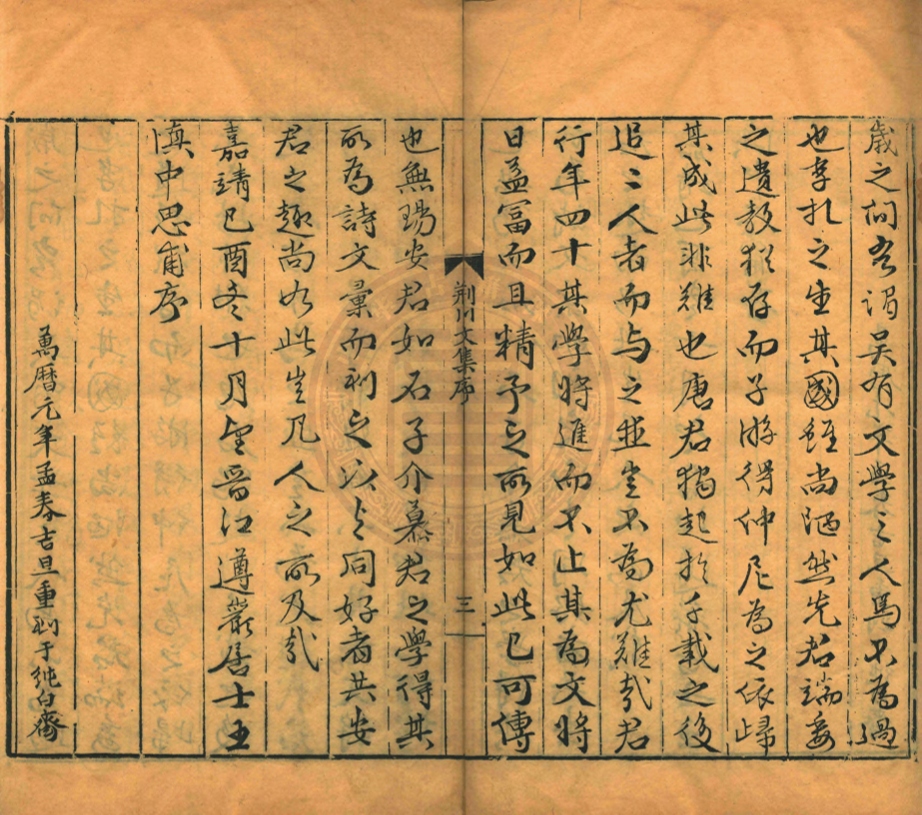 歲之間吾謂吳有文學之人焉不為過
也季札之生其國雖尚陋然先君端委
之遺教猶存而子游得仲尼為之依歸
其成此非難也唐君獨起於千載之後
追二人者而与之並豈不為尤難哉君
行年四十其學將進而不止其為文將
日益富而且精予之所見如此已可傳
荆川文集序
三
也無錫安君如石子介慕君之學得其
所為詩文彙而刻之以与同好者共安
君之趣尚如此豈凡人之所及哉
嘉靖己酉冬十月望晉江遵巖居士王
慎中思甫序
萬曆元年孟春吉旦重刻于純白齋